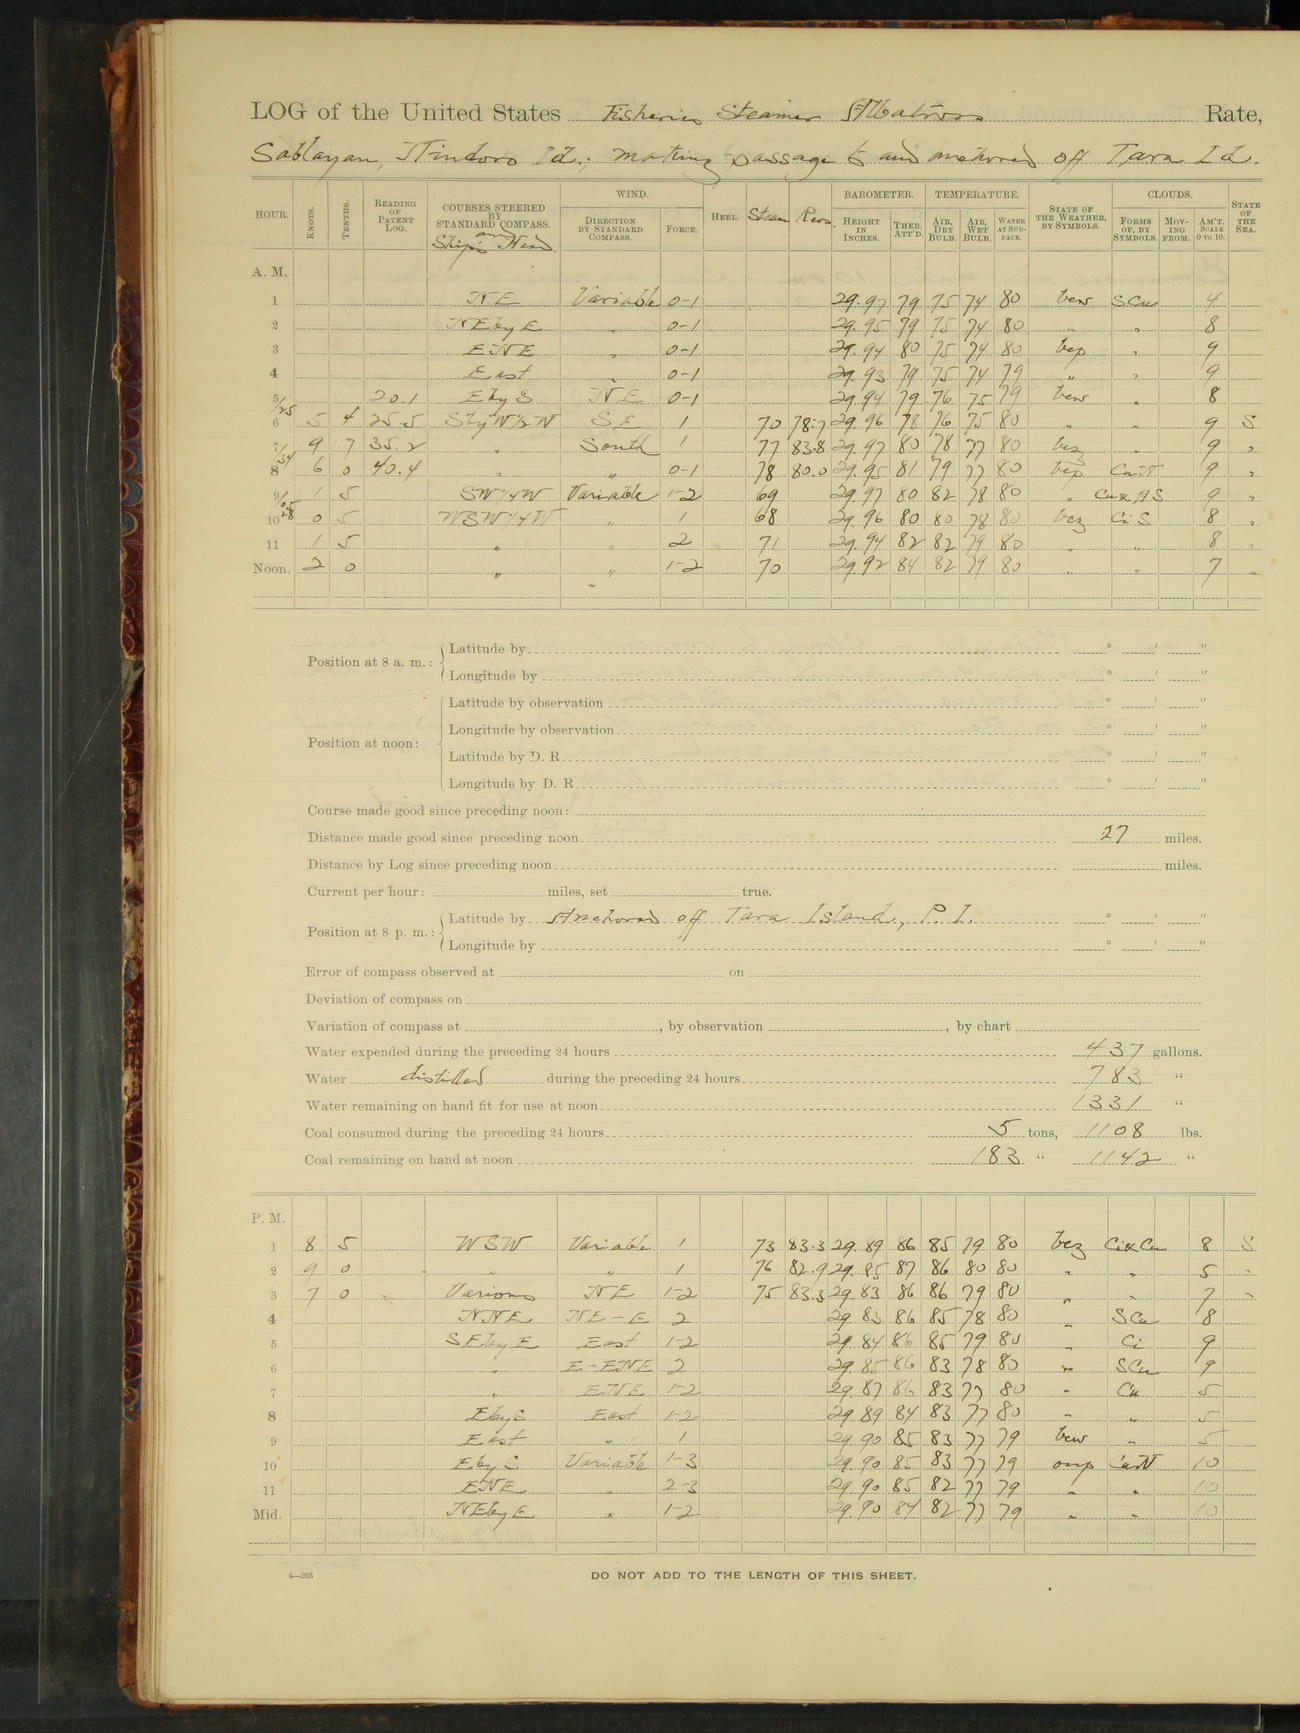 LOG of the United States Fisheries Steamer Albatross Rate,
Sablayan, Mindoro Id.; making passage to and anchored off Tara Id.
HOUR. KNOTS. TENTHS. READING OF PATENT LOG. COURSES STEERED BY STANDARD COMPASS. and Ship's Head WIND. DIRECTION BY STANDARD COMPASS. FORCE. HEEL. Steam Revs. BAROMETER. HEIGHT IN INCHES. THER. ATT'D. TEMPERATURE. AIR, DRY BULB. AIR, WET BULB. WATER AT SURFACE. STATE OF THE WEATHER, BY SYMBOLS. CLOUDS. FORMS OF, BY SYMBOLS. MOVING FROM. AM'T. SCALE 0 TO 10. STATE OF THE SEA.
A. M.
1 NE Variable 0-1 29.97 79 75 74 80 bcw SCu 4
2 NEbyE " 0-1 29.95 79 75 74 80 " " 8
3 ENE " 0-1 29.94 80 75 74 80 bcp " 9
4 East " 0-1 29.93 79 75 74 79 " " 9
5 20.1 EbyS NE 0-1 29.94 79 76 75 79 bcw " 8
5/25 6 5 4 25.5 SbyW1/2W SE 1 70 78.7 29.96 78 76 75 80 " " 9 S
7 9 7 35.2 " South 1 77 83.8 29.97 80 78 77 80 bcz " 9 "
7/34 8 6 0 40.4 " " 0-1 78 80.0 29.95 81 79 77 80 bcp CuN 9 "
9 1 5 SW1/4W Variable 1-2 69 29.97 80 82 78 80 " Cu & AS 9 "
10 0 5 WSW1/4W " 1 68 29.96 80 80 78 80 bcz CiS 8 "
11 1 5 " " 2 71 29.94 82 82 79 80 " " 8 "
Noon. 2 0 " " 1-2 70 29.92 84 82 79 80 " " 7 "
Position at 8 a. m.: Latitude by ° ' "
Longitude by ° ' "
Position at noon: Latitude by observation ° ' "
Longitude by observation ° ' "
Latitude by D. R. ° ' "
Longitude by D. R. ° ' "
Course made good since preceding noon:
Distance made good since preceding noon 27 miles.
Distance by Log since preceding noon miles.
Current per hour: miles, set true.
Position at 8 p. m.: Latitude by Anchored off Tara Island, P. I. ° ' "
Longitude by ° ' "
Error of compass observed at on
Deviation of compass on
Variation of compass at , by observation , by chart
Water expended during the preceding 24 hours 437 gallons.
Water distilled during the preceding 24 hours 783 "
Water remaining on hand fit for use at noon 1331 "
Coal consumed during the preceding 24 hours 5 tons, 1108 lbs.
Coal remaining on hand at noon 183 " 1142 "
P. M.
1 8 5 WSW Variable 1 73 83.3 29.89 86 85 79 80 bcz Ci & Cu 8 S
2 9 0 " " 1 76 82.9 29.85 87 86 80 80 " " 5 "
3 7 0 " Various NE 1-2 75 83.3 29.83 86 86 79 80 " " 7 "
4 NNE NE-E 2 29.83 86 85 78 80 " SCu 8
5 SEbyE East 1-2 29.84 86 85 79 80 " Ci 9
6 " E-ENE 2 29.85 86 83 78 80 " SCu 9
7 " ENE 1-2 29.87 86 83 77 80 " Cu 5
8 EbyS East 1-2 29.89 84 83 77 80 " " 5
9 East " 1 29.90 85 83 77 79 bcw " 5
10 EbyS Variable 1-3 29.90 85 83 77 79 omp CuN 10
11 ENE " 2-3 29.90 85 82 77 79 " " 10
Mid. NEbyE " 1-2 29.90 84 82 77 79 " " 10
4—265
DO NOT ADD TO THE LENGTH OF THIS SHEET.